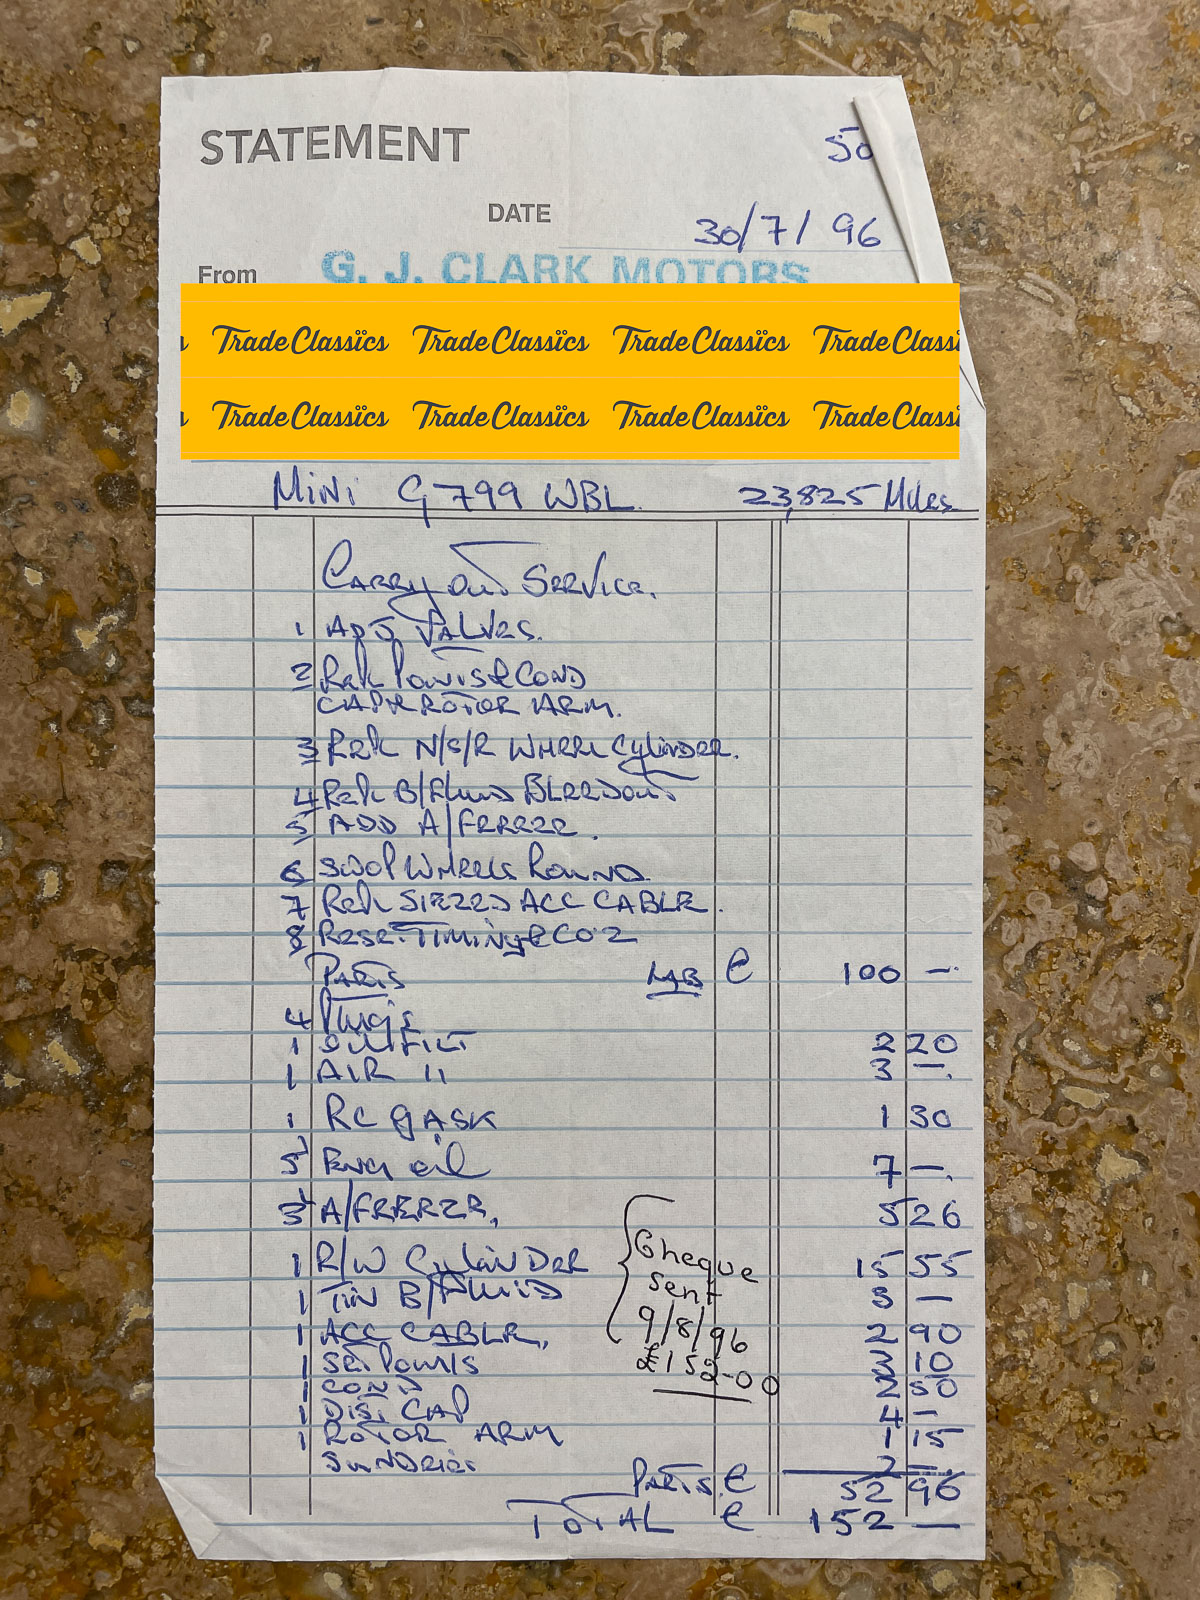 STATEMENT
50
DATE 30/7/96
From G. J. CLARK MOTORS
TradeClassics TradeClassics TradeClassics TradeClassi
TradeClassics TradeClassics TradeClassics TradeClassi
MINI G799 WBL 23,825 Miles
CARRY OUT SERVICE.
1 ADJ VALVES.
2 Points & COND
CAP & ROTOR ARM.
3 N/S/R WHEEL CYLINDER.
4 B/Fluid BLEED OUT
5 ADD A/FREEZE.
6 SWOP WHEELS ROUND
7 SIEZED ACC CABLE.
8 RESET TIMING & CO2
PARTS LAB £ 100 —
4 Plugs
1 OIL FILT 2 20
1 AIR " 3 —.
1 RC GASK 1 30
5 ENG OIL 7 —.
3 A/FREEZE, 5 26
1 R/W CYLINDER 15 55
1 TIN B/FLUID 3 —
1 ACC CABLE, 2 90
1 SET POINTS 3 10
1 COND 2 50
1 DIST CAP 4 —
1 ROTOR ARM 1 15
SUNDRIES 2 —.
Cheque
sent
9/8/96
£152-00
PARTS. £ 52 96
TOTAL £ 152 —